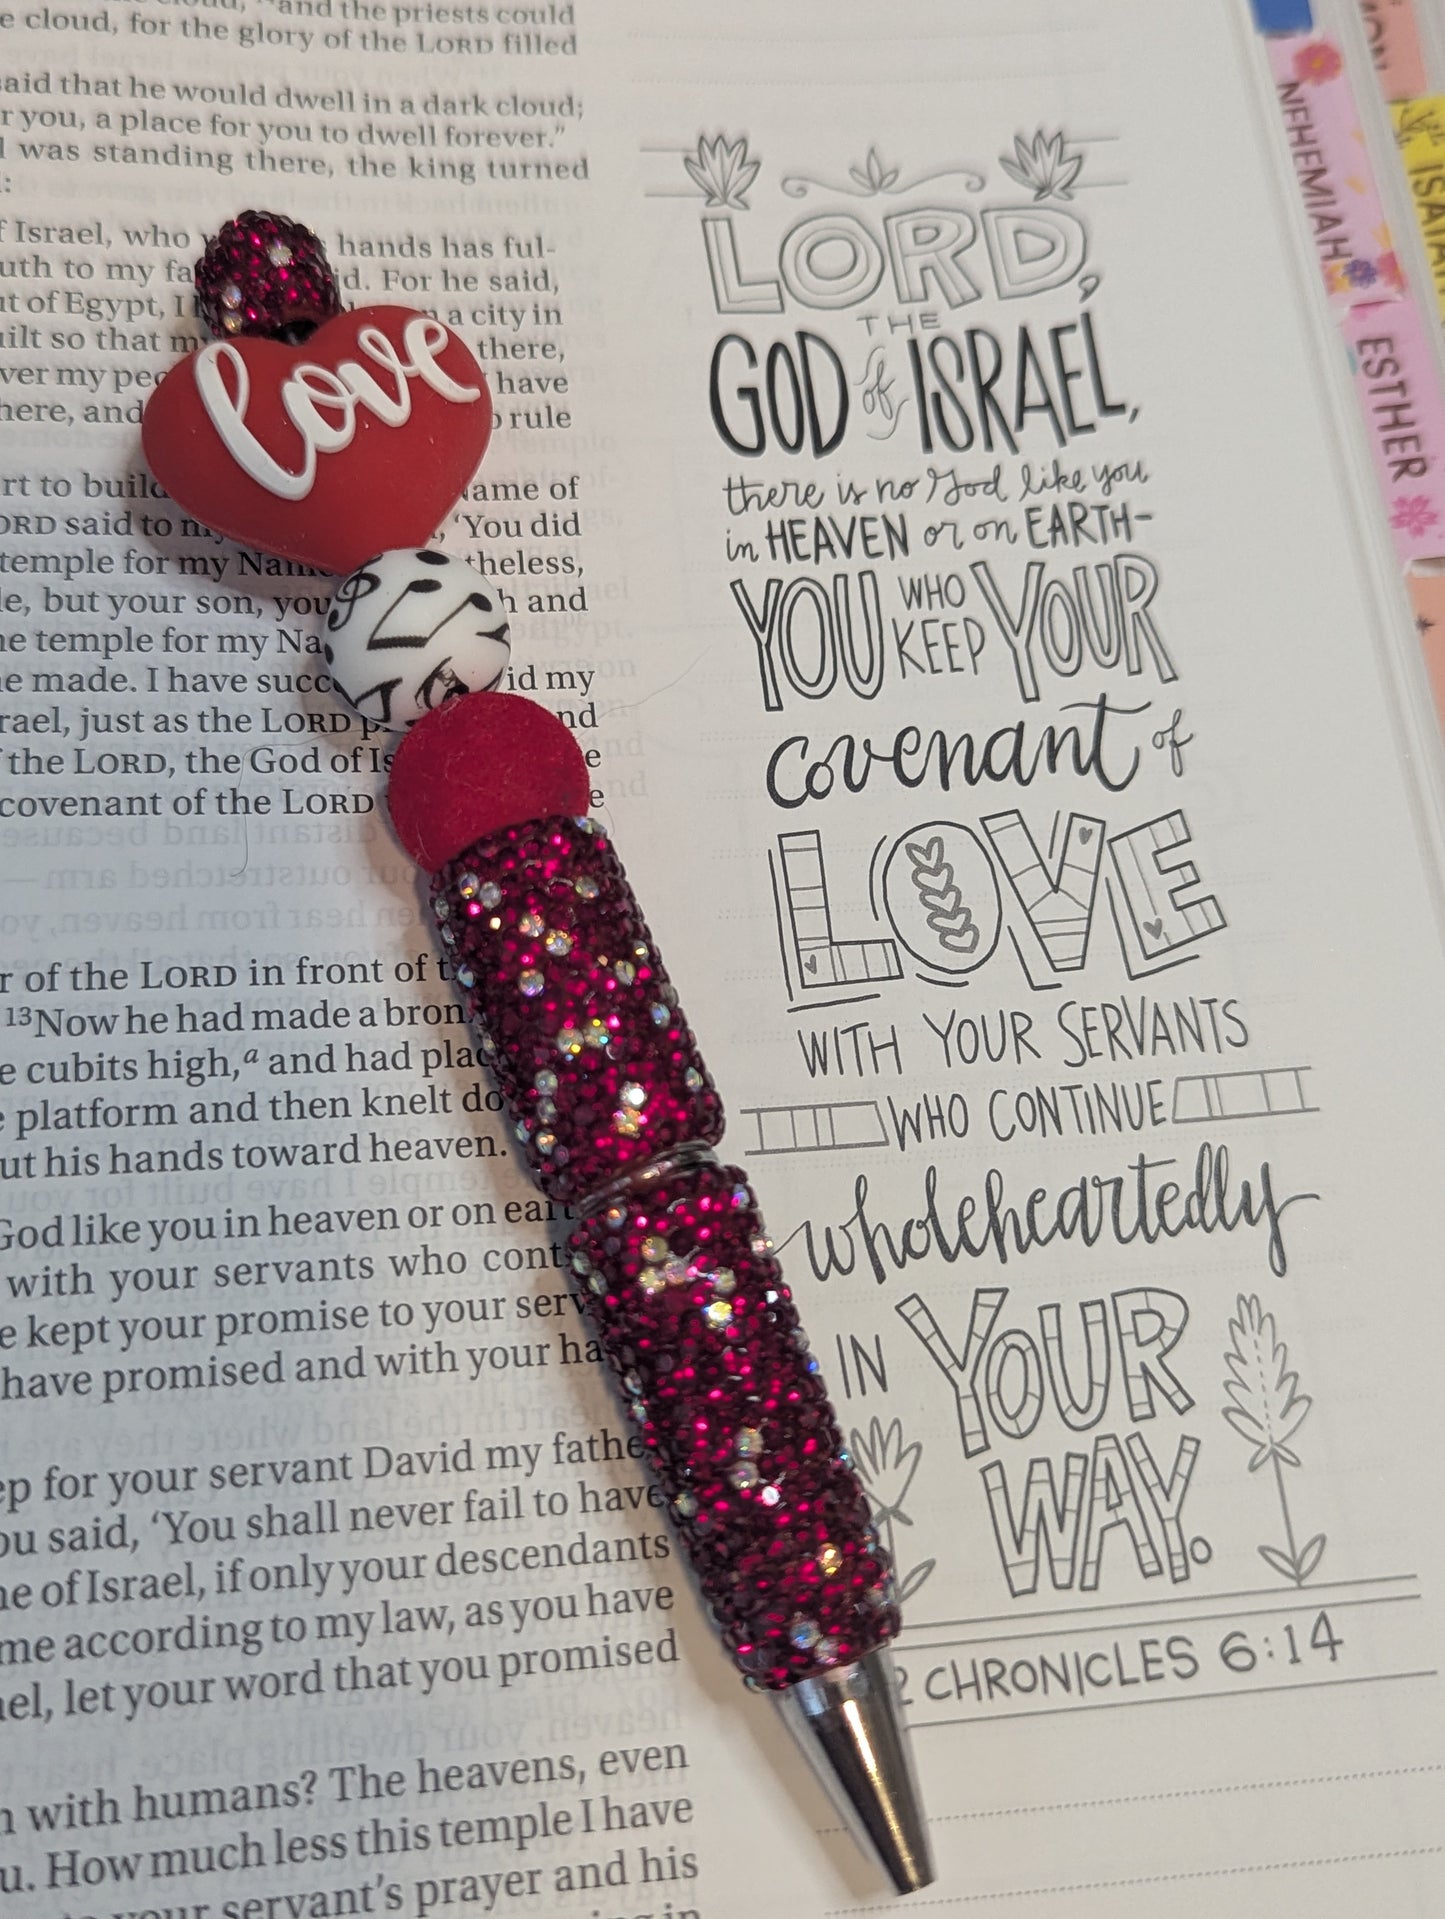 and the priests could
e cloud, for the glory of the LORD filled
said that he would dwell in a dark cloud;
r you, a place for you to dwell forever.”
l was standing there, the king turned
:
f Israel, who hands has ful-
uth to my fa d. For he said,
ut of Egypt, I a city in
uilt so that m there,
ver my peo have
here, and rule
rt to build ame of
ORD said to m , ‘You did
temple for my Name theless,
le, but your son, you h and
he temple for my Na
e made. I have succ id my
rael, just as the LORD p nd
f the LORD, the God of Is e
covenant of the LORD e
r of the LORD in front of t
13Now he had made a bron
e cubits high,a and had plac
e platform and then knelt do
ut his hands toward heaven.
God like you in heaven or on eart
with your servants who cont
e kept your promise to your serv
have promised and with your ha
ep for your servant David my fathe
ou said, ‘You shall never fail to have
ne of Israel, if only your descendants
me according to my law, as you have
ael, let your word that you promised
n with humans? The heavens, even
u. How much less this temple I have
your servant’s prayer and his
love
LORD,
THE
GOD of ISRAEL,
there is no God like you
in HEAVEN or on EARTH–
YOU WHO KEEP YOUR
covenant of
LOVE
WITH YOUR SERVANTS
WHO CONTINUE
wholeheartedly
IN YOUR
WAY.
2 CHRONICLES 6:14
NEHEMIAH
ESTHER
ISAIAH